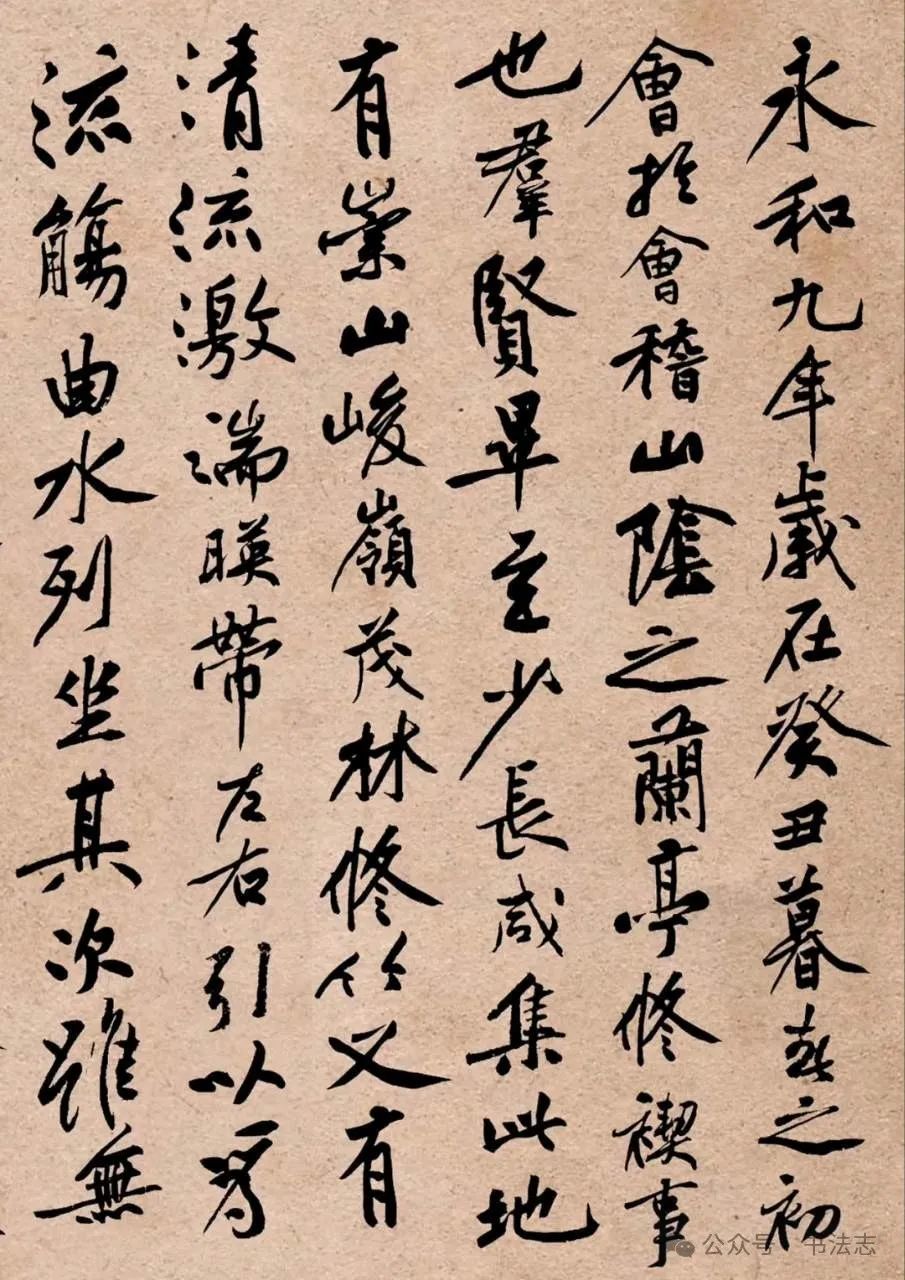 永和九年歲在癸丑暮春之初
會於會稽山陰之蘭亭脩禊事
也羣賢畢至少長咸集此地
有崇山峻嶺茂林脩竹又有
清流激湍暎帶左右引以為
流觴曲水列坐其次雖無
公众号·书法志